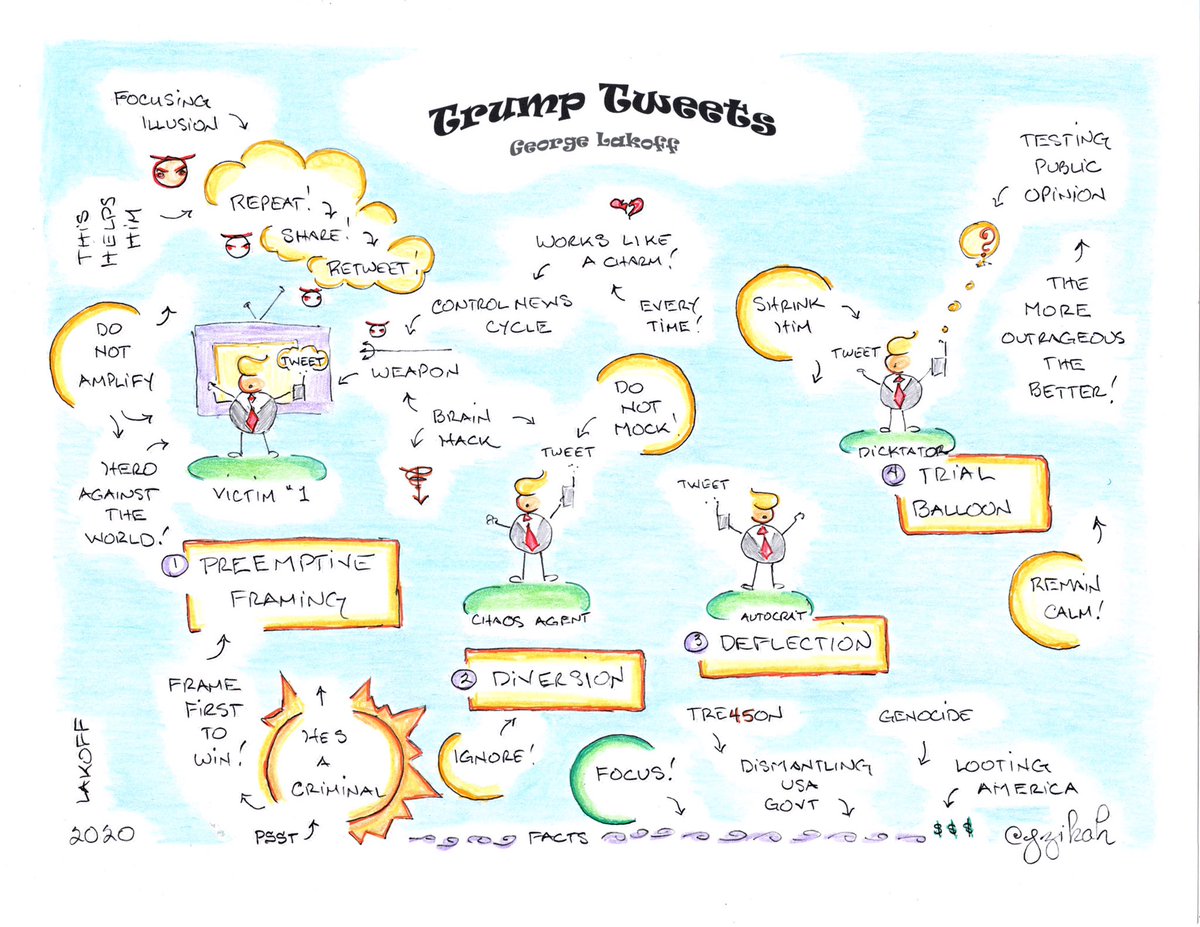 Trump Tweets
George Lakoff
FOCUSING
ILLUSION
THIS
HELPS
HIM
REPEAT!
SHARE!
RETWEET!
DO
NOT
AMPLIFY
HERO
AGAINST
THE
WORLD!
TWEET
VICTIM #1
1 PREEMPTIVE
FRAMING
FRAME
FIRST
TO
WIN!
HES
A
CRIMINAL
PSST
WORKS LIKE
A CHARM!
EVERY
TIME!
CONTROL NEWS
CYCLE
WEAPON
BRAIN
HACK
DO
NOT
MOCK!
TWEET
CHAOS AGENT
2 DIVERSION
IGNORE!
TWEET
AUTOCRAT
3 DEFLECTION
SHRINK
HIM
TWEET
?
DICKTATOR
4 TRIAL
BALLOON
TESTING
PUBLIC
OPINION
THE
MORE
OUTRAGEOUS
THE
BETTER!
REMAIN
CALM!
FOCUS!
TRE45ON
DISMANTLING
USA
GOVT
GENOCIDE
LOOTING
AMERICA
$ $ $
FACTS
LAKOFF
2020
@gzikah